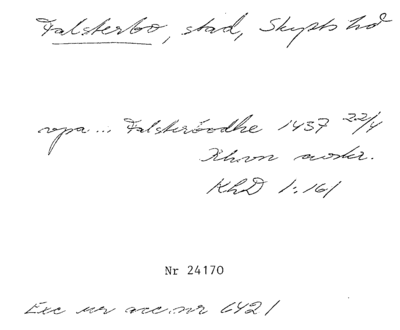 Falsterbo, stad, Skytts hd
opa... Falsterbodhe 1437 22/4
Khvn avskr.
KhD 1:161
Nr 24170
Exc ur acc. nr 6421